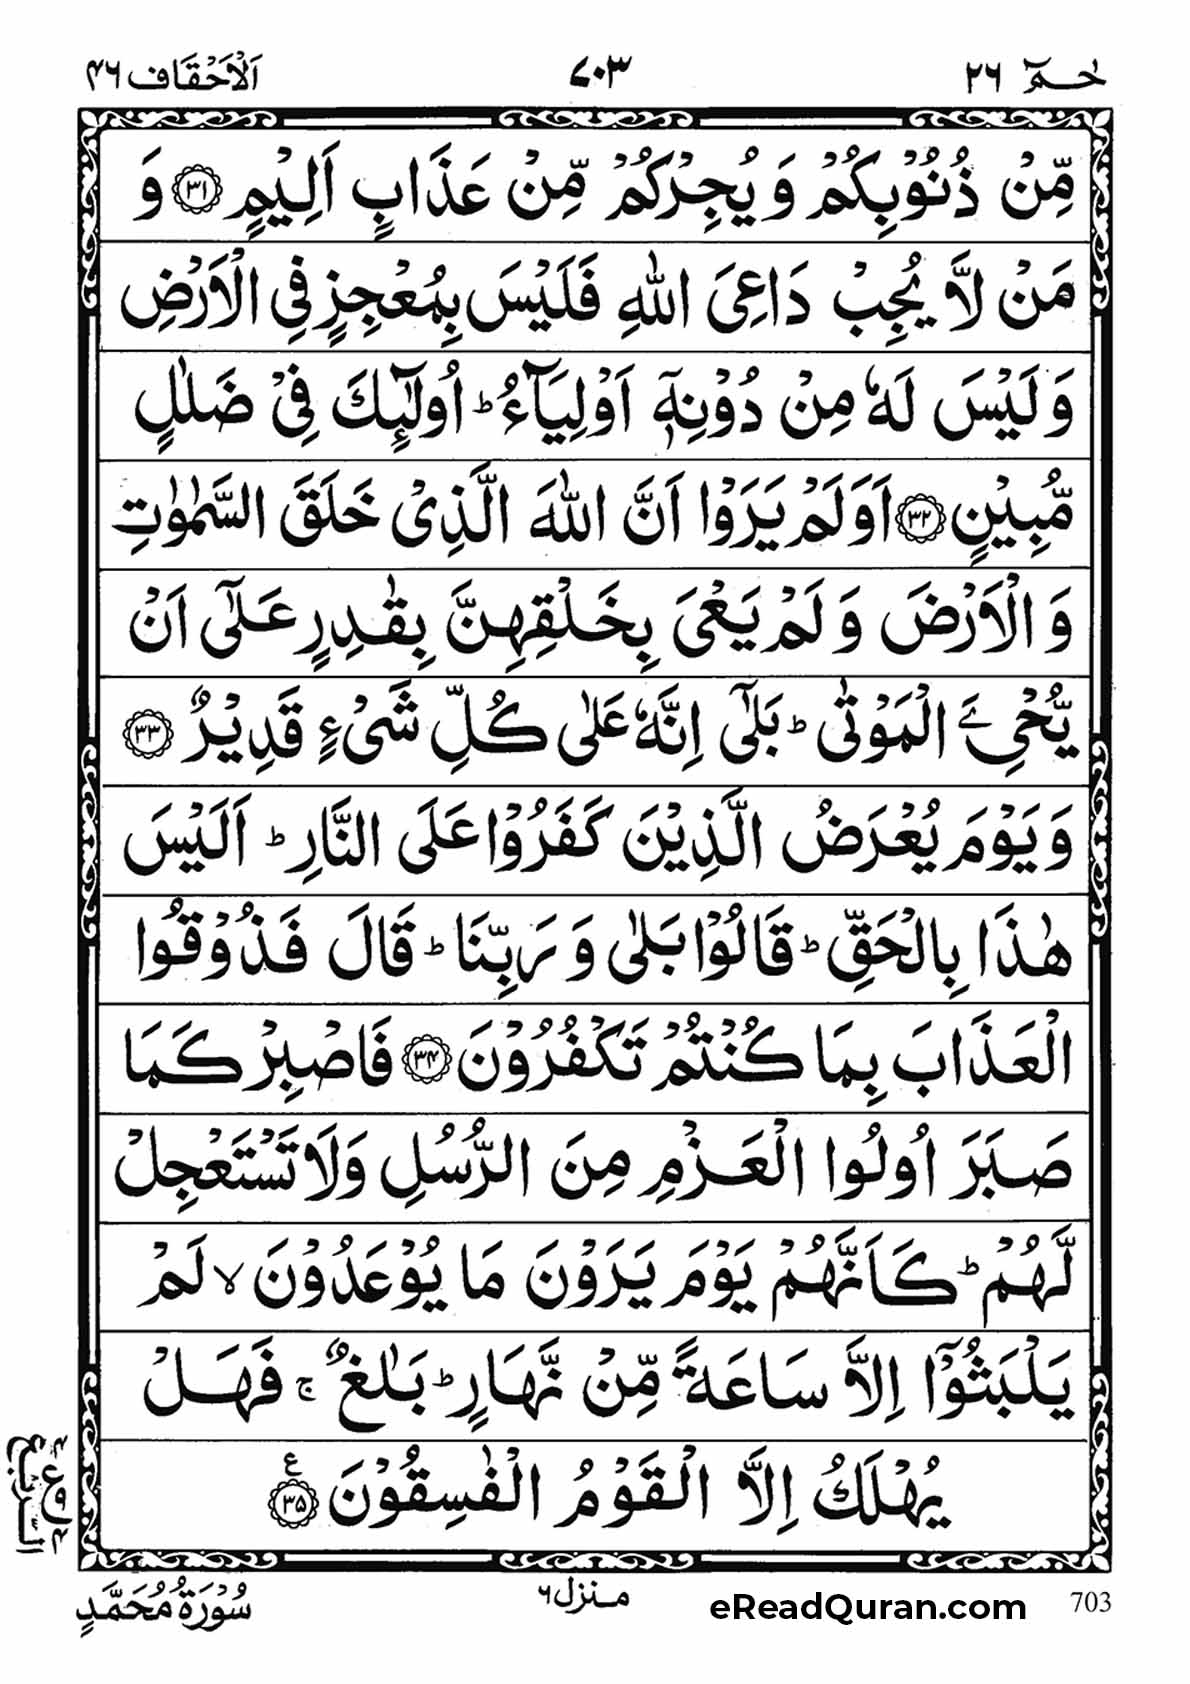 حٰمٓ ٢٦
٧٠٣
اَلْاَحْقَاف ٤٦
مِّنْ ذُنُوْبِكُمْ وَيُجِرْكُمْ مِّنْ عَذَابٍ اَلِيْمٍ ﴿٣١﴾ وَ
مَنْ لَّا يُجِبْ دَاعِیَ اللّٰهِ فَلَيْسَ بِمُعْجِزٍ فِی الْاَرْضِ
وَلَيْسَ لَهٗ مِنْ دُوْنِهٖۤ اَوْلِيَآءُ ؕ اُولٰٓئِكَ فِیْ ضَلٰلٍ
مُّبِيْنٍ ﴿٣٢﴾ اَوَلَمْ يَرَوْا اَنَّ اللّٰهَ الَّذِیْ خَلَقَ السَّمٰوٰتِ
وَالْاَرْضَ وَلَمْ يَعْیَ بِخَلْقِهِنَّ بِقٰدِرٍ عَلٰۤی اَنْ
يُّحْیِۦَ الْمَوْتٰی ؕ بَلٰۤی اِنَّهٗ عَلٰی كُلِّ شَیْءٍ قَدِيْرٌ ﴿٣٣﴾
وَيَوْمَ يُعْرَضُ الَّذِيْنَ كَفَرُوْا عَلَی النَّارِ ؕ اَلَيْسَ
هٰذَا بِالْحَقِّ ؕ قَالُوْا بَلٰی وَرَبِّنَا ؕ قَالَ فَذُوْقُوا
الْعَذَابَ بِمَا كُنْتُمْ تَكْفُرُوْنَ ﴿٣٤﴾ فَاصْبِرْ كَمَا
صَبَرَ اُولُوا الْعَزْمِ مِنَ الرُّسُلِ وَلَا تَسْتَعْجِلْ
لَّهُمْ ؕ كَاَنَّهُمْ يَوْمَ يَرَوْنَ مَا يُوْعَدُوْنَ ۙ لَمْ
يَلْبَثُوْۤا اِلَّا سَاعَةً مِّنْ نَّهَارٍ ؕ بَلٰغٌ ۚ فَهَلْ
يُهْلَكُ اِلَّا الْقَوْمُ الْفٰسِقُوْنَ ﴿٣٥﴾ ع
703
eReadQuran.com
منزل ٦
سُوْرَةُ مُحَمَّدٍ